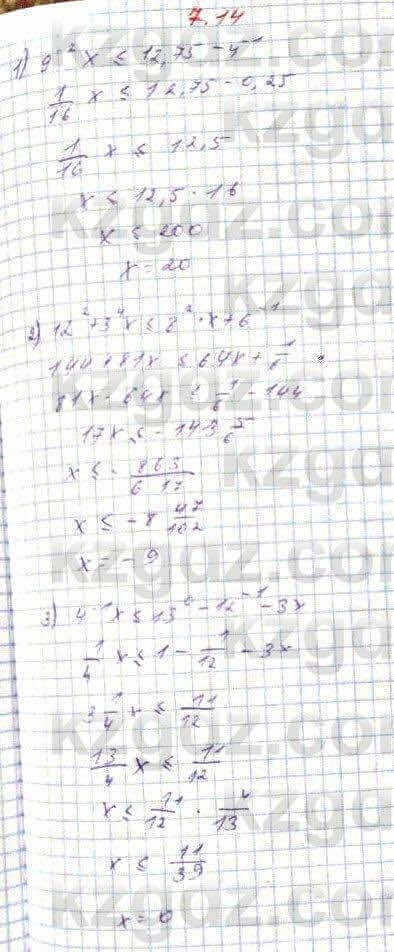 7.14
1) 9⁻² x ≤ 12,75 - 4⁻¹
1/16 x ≤ 12,75 - 0,25
1/16 x ≤ 12,5
x ≤ 12,5 · 16
x ≤ 200
x = 20
2) 12² + 3⁴x ≤ 8² · x + 6⁻¹
144 + 81x ≤ 64x + 1/6
81x - 64x ≤ 1/6 - 144
17x ≤ - 143 5/6
x ≤ - 863/6·17
x ≤ -8 47/102
x = - 9
3) 4⁻¹x ≤ 13⁰ - 12⁻¹ - 3x
1/4 x ≤ 1 - 1/12 - 3x
3 1/4 x ≤ 11/12
13/4 x ≤ 11/12
x ≤ 11/12 · 4/13
x ≤ 11/39
x = 0
kzgdz.com